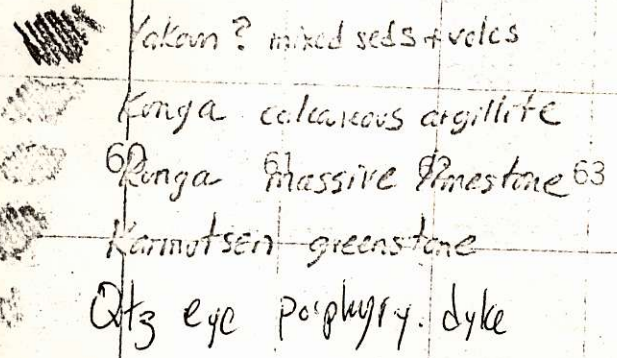 Yakoun ? mixed seds + volcs
Kunga calcareous argillite
60 Kunga 61 massive limestone 63
Karmutsen greenstone
Qtz eye porphyry dyke